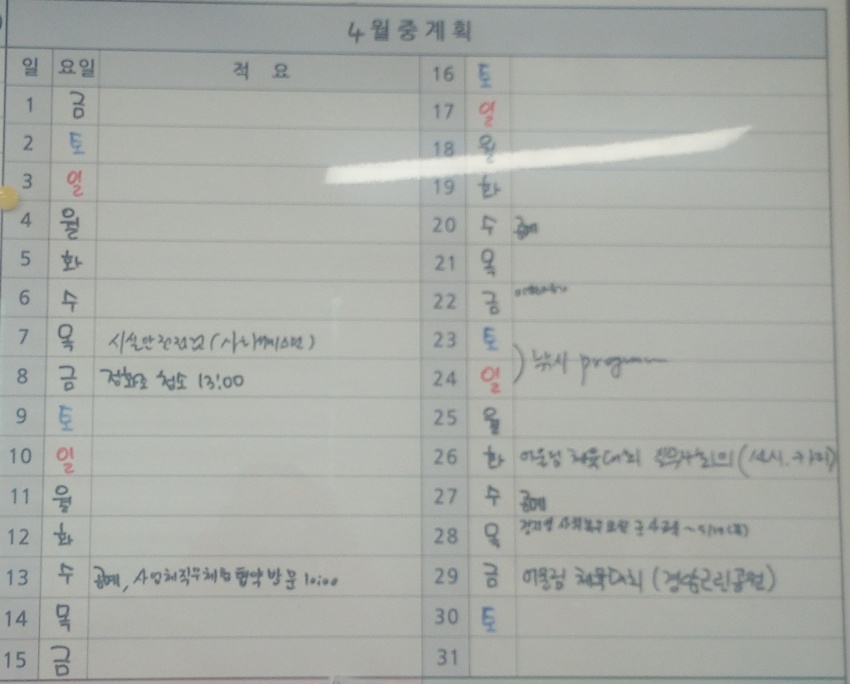 4월중계획
일 요일 적 요
1 금
2 토
3 일
4 월
5 화
6 수
7 목 시설안전점검
8 금 정화조 청소 13:00
9 토
10 일
11 월
12 화
13 수 공예, 사업체직무체험 협약 방문 10:00
14 목
15 금
16 토
17 일
18 월
19 화
20 수 공예
21 목
22 금
23 토
24 일 낚시 program
25 월
26 화 어울림 체육대회
27 수 공예
28 목
29 금 어울림 체육대회
30 토
31